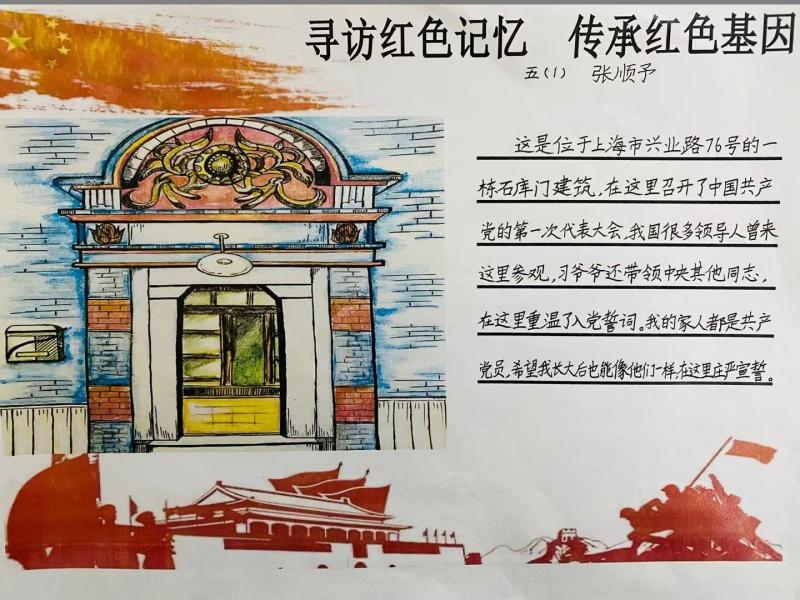 寻访红色记忆 传承红色基因
五(1) 张顺予
这是位于上海市兴业路76号的一
栋石库门建筑,在这里召开了中国共产
党的第一次代表大会,我国很多领导人曾来
这里参观,习爷爷还带领中央其他同志,
在这里重温了入党誓词。我的家人都是共产
党员,希望我长大后也能像他们一样,在这里庄严宣誓。